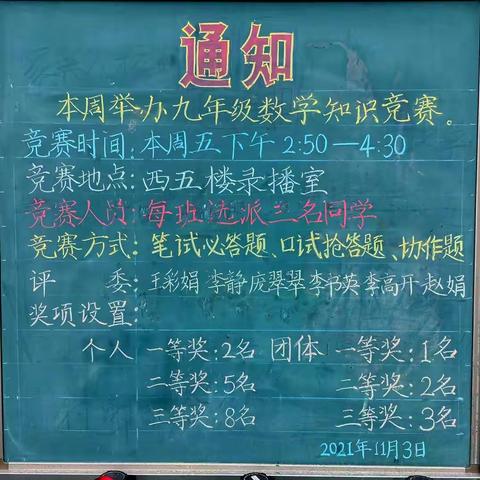 通知
本周举办九年级数学知识竞赛。
竞赛时间:本周五下午 2:50—4:30
竞赛地点:西五楼录播室
竞赛人员:每班选派三名同学
竞赛方式:笔试必答题、口试抢答题、协作题
评 委:王彩娟 李静 庞翠翠 李书英 李高开 赵娟
奖项设置:
个人 一等奖:2名 团体 一等奖:1名
二等奖:5名 二等奖:2名
三等奖:8名 三等奖:3名
2021年11月3日